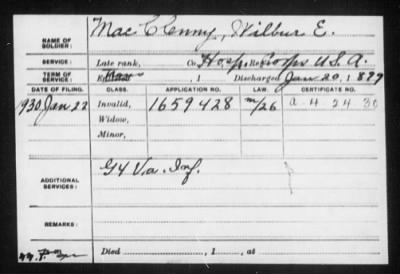 NAME OF SOLDIER: Mac Clenny, Wilbur E.
SERVICE: Late rank, Co. Hosp. Corps U.S.A.
TERM OF SERVICE: Enlisted , 1 Discharged Jan 20, 1899
DATE OF FILING. CLASS. APPLICATION NO. LAW. CERTIFICATE NO.
1930 Jan 22 Invalid, 1659428 a 4 24 30
Widow,
Minor,
ADDITIONAL SERVICES: G 4 Va. Inf.
REMARKS:
Died , 1 , at